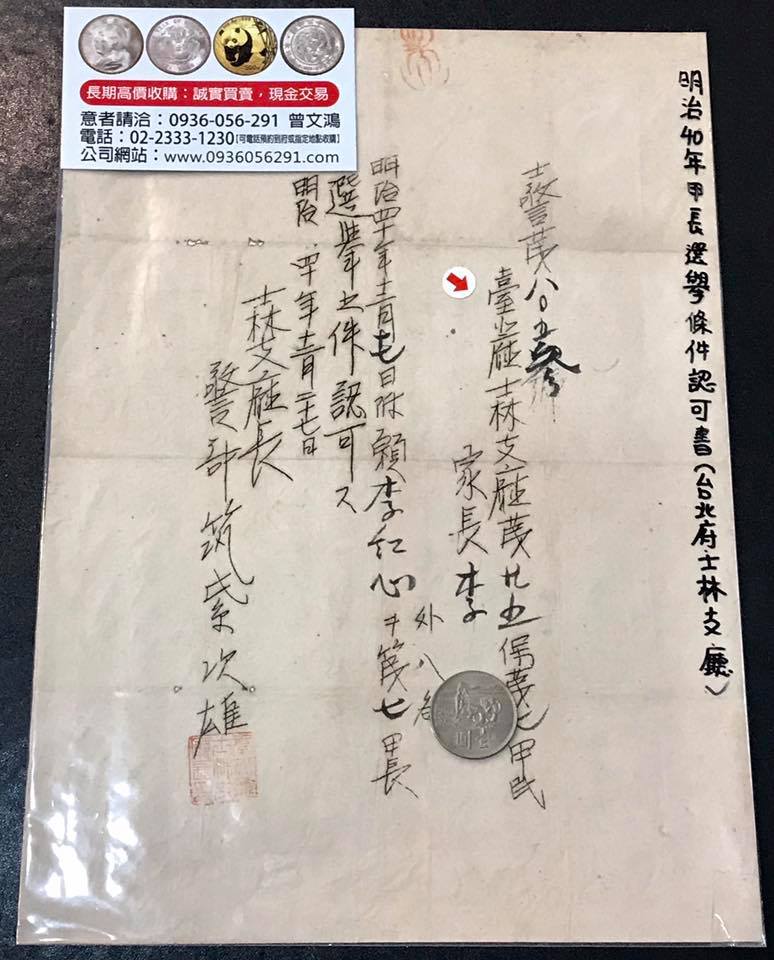 長期高價收購：誠實買賣，現金交易
意者請洽：0936-056-291 曾文鴻
電話：02-2333-1230【可電話預約到府或指定地點收購】
公司網站：www.0936056291.com
明治40年甲長選舉條件認可書(台北府士林支廳)
士警茂八〇五參
臺北廳士林支廳茂廿五保茂七甲民
家長 李
外八名
明治四十年十二月十七日附願李紅心ヲ第七甲長
選舉之件認可ス
明治 四十年十二月二十七日
士林支廳長
警部筑紫次雄